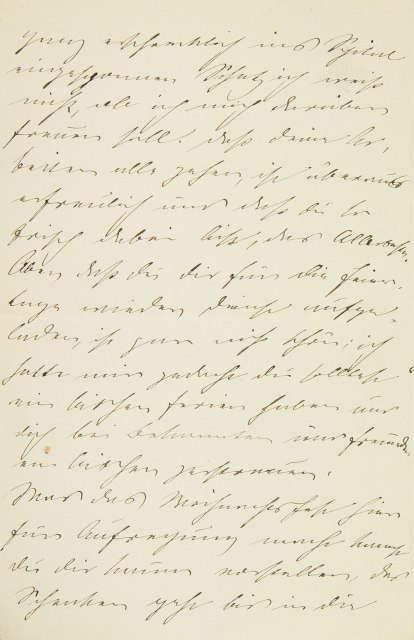 ganz erschrecklich ins Spital
eingesponnen Schatz ich weiß
nicht, ob ich mich darüber
freuen soll. daß deine Ar-
beiten alle gehen, ist überaus
erfreulich und daß du so
frisch dabei bist, das Allerbeste.
Aber daß du dir für die Feier-
tage wieder Dienst aufge-
laden, ist gar nicht schön; ich
hatte mir gedacht, du solltest
ein bischen Ferien haben und
dich bei Bekannten und Freunden
ein bischen zerstreuen.
Was das Weihnachtsfest hier
für Aufregung macht kannst
du dir kaum vorstellen, das
Schenken geht bis in die